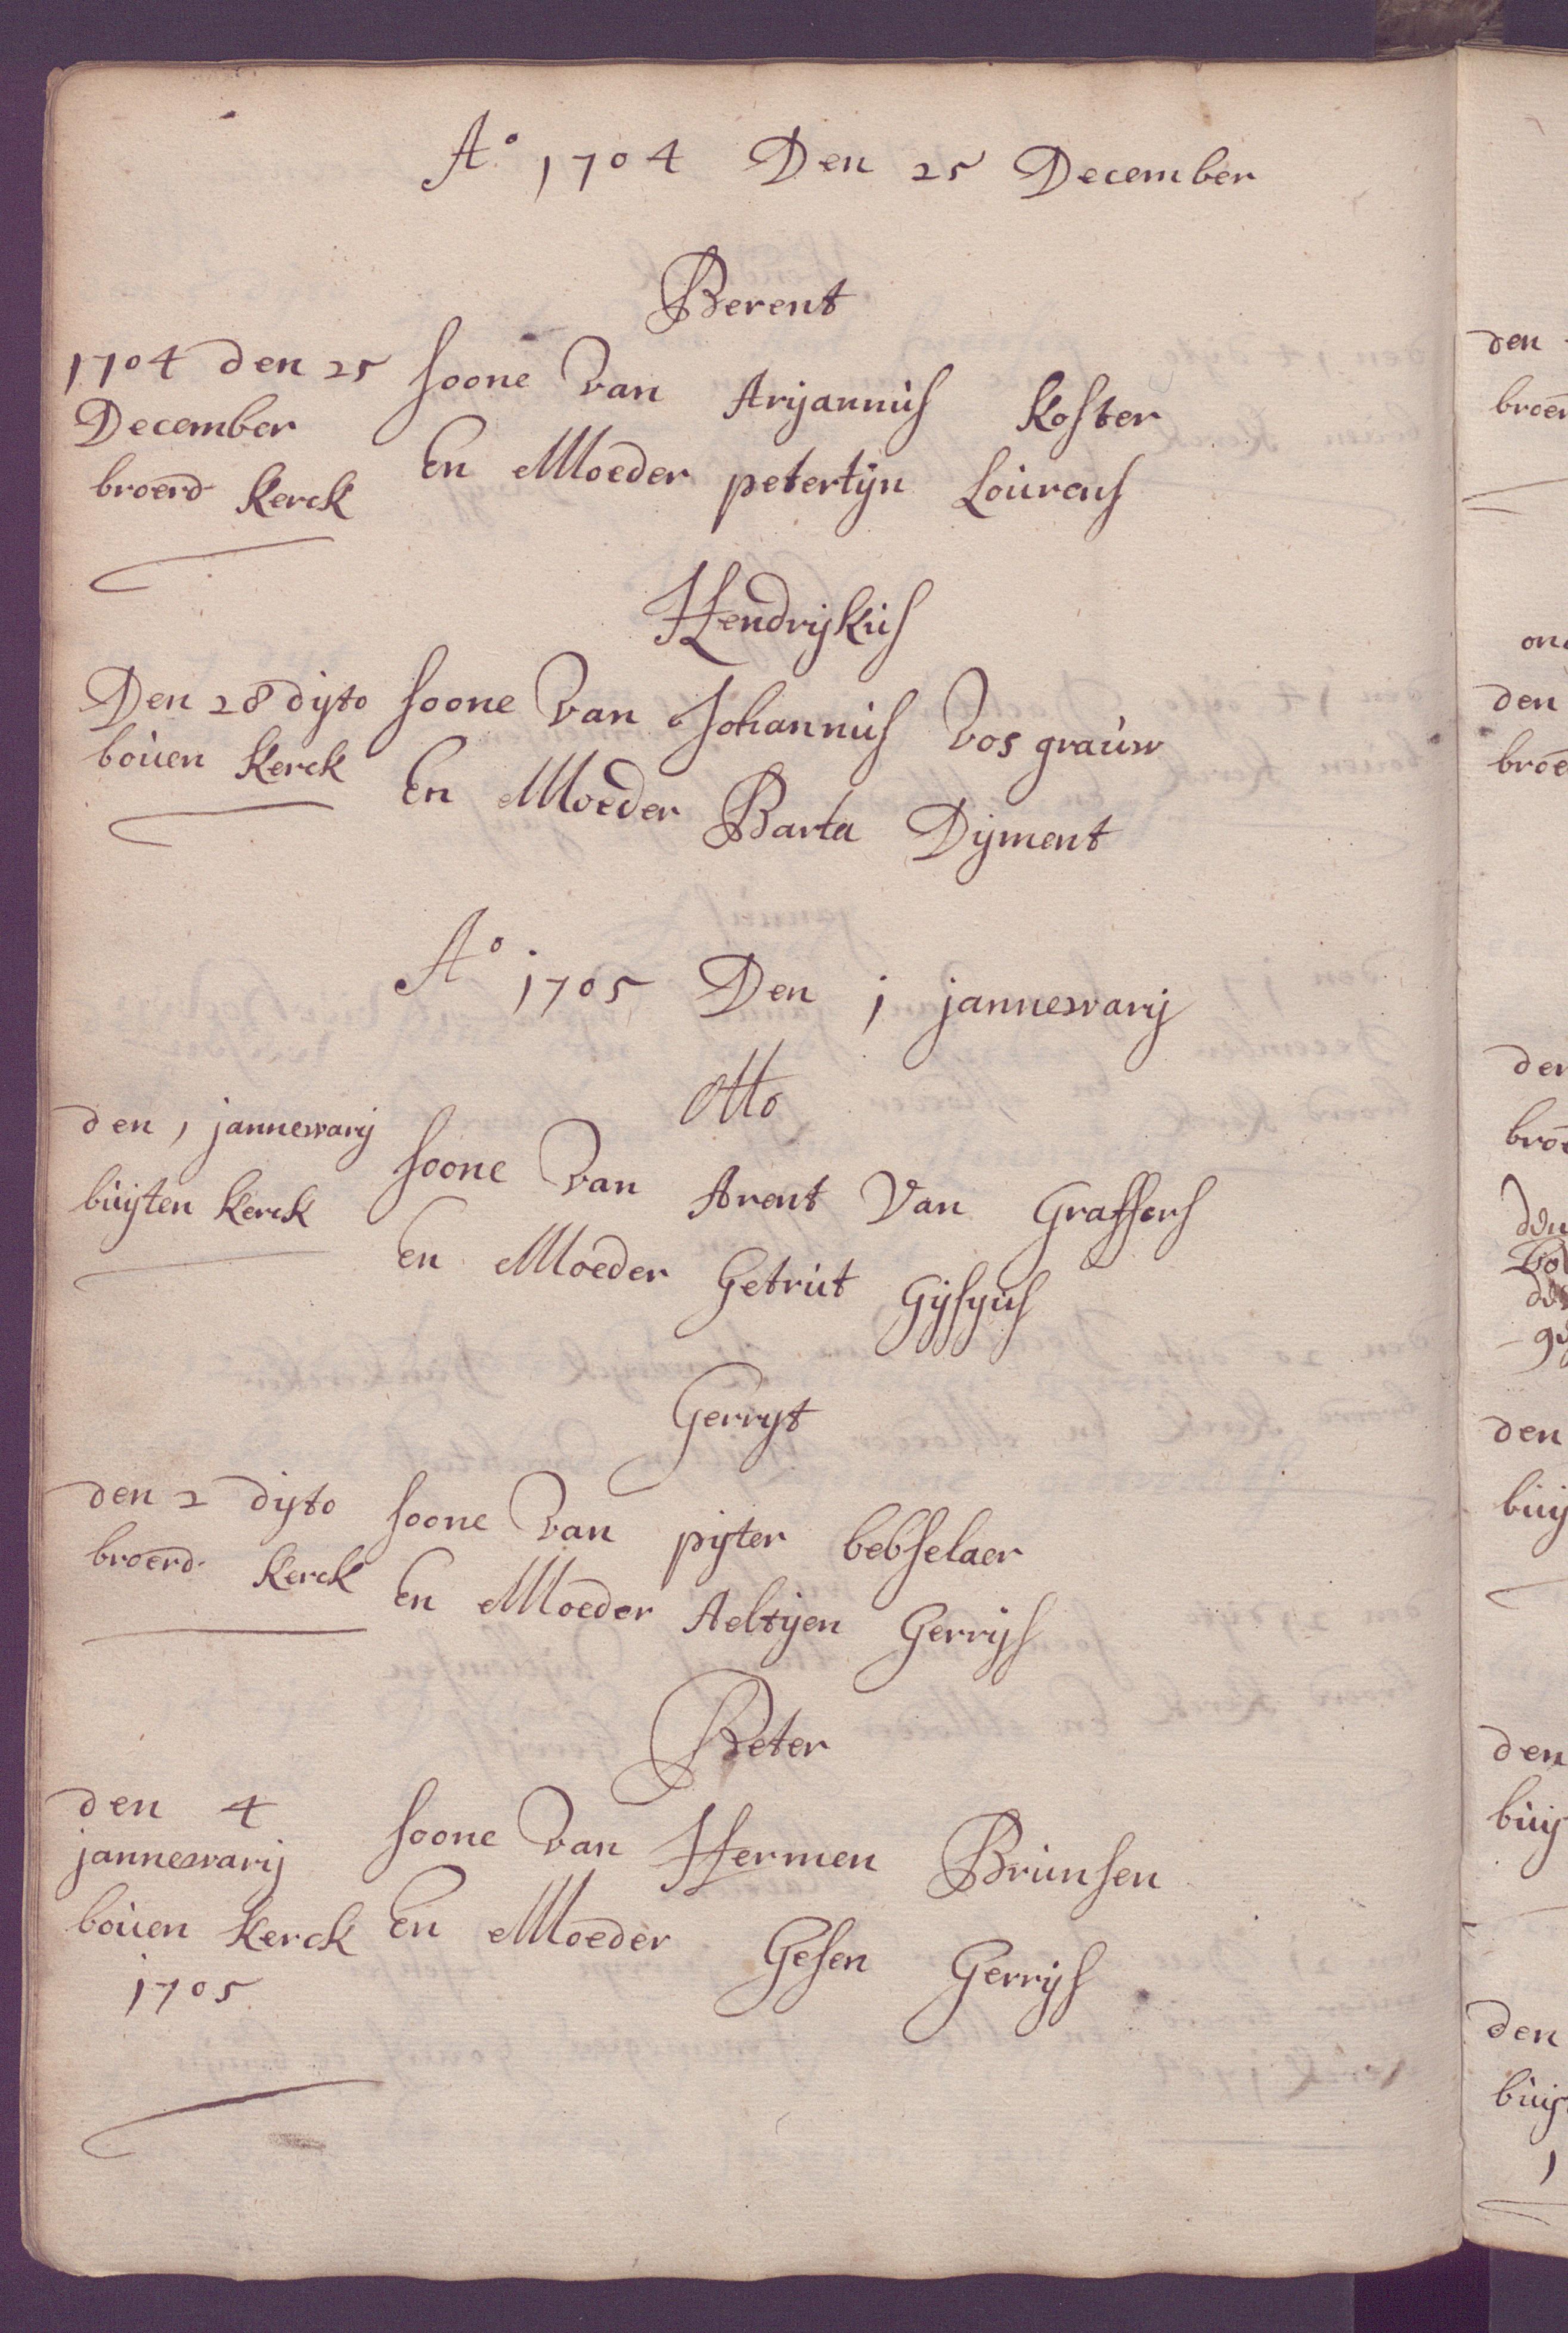 Ao 1704 Den 25 December
Berent
1704 den 25
December
broerd kerck
soone van Arijannus koster
En Moeder petertijn Lourens
Hendrijkus
Den 28 dijto
bouen kerck
soone van Johannus vos grauw
En Moeder Barta Dijment
Ao 1705 Den 1 jannewarij
Otto
den 1 jannewarij
buijten kerck
soone van Arent van Graffers
en Moeder Getrut Gijsijus
Gerryt
den 2 dijto
broerd kerck
soone van pijter bebselaer
En Moeder Aeltijen Gerrijs
Peter
den 4
jannewarij
bouen kerck
1705
soone van Hermen Brunsen
En Moeder Gesen Gerrijs
den
broer
den
broe
den
broe
den
buij
den
buij
den
buij